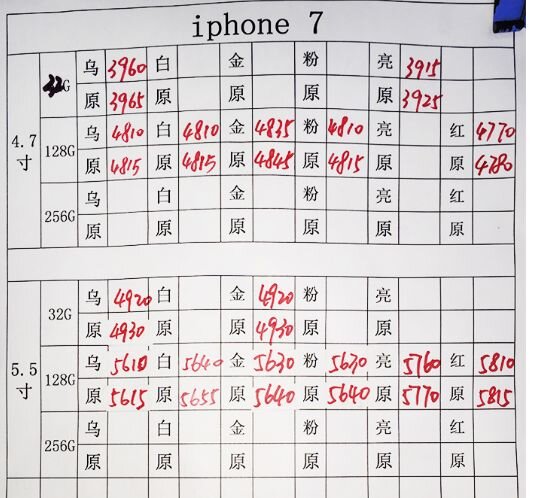 iphone 7
32G 乌 3960 白 金 粉 亮 3915
原 3965 原 原 原 原 3925
4.7寸 128G 乌 4810 白 4810 金 4835 粉 4810 亮 红 4770
原 4815 原 4815 原 4845 原 4815 原 原 4780
256G 乌 白 金 粉 亮 红
原 原 原 原 原 原
32G 乌 4920 白 金 4920 粉 亮
原 4930 原 原 4930 原 原
5.5寸 128G 乌 5610 白 5640 金 5630 粉 5630 亮 5760 红 5810
原 5615 原 5655 原 5640 原 5640 原 5770 原 5815
256G 乌 白 金 粉 亮 红
原 原 原 原 原 原